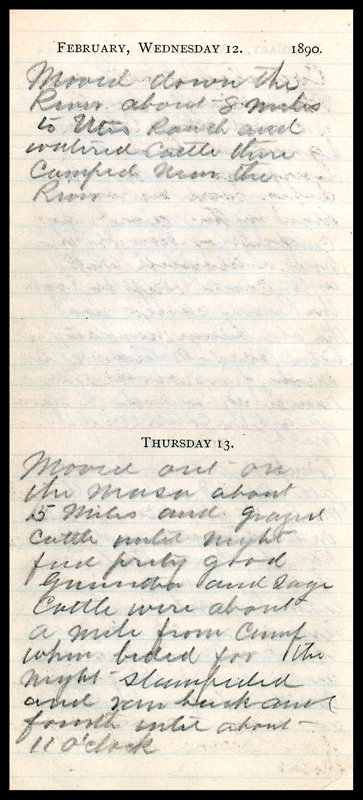 FEBRUARY, WEDNESDAY 12. 1890.
Moved down the
River about 8 miles
to Utes Ranch and
watered Cattle there
Camped Near the
River
THURSDAY 13.
Moved out on
the Masa about
5 Miles and grazed
Cattle until Night
fed prety good
and Sage
Cattle were about
a mile from Camp
when beded for the
Night Stampeded
and ran back and
fourth until about
11 o'clock